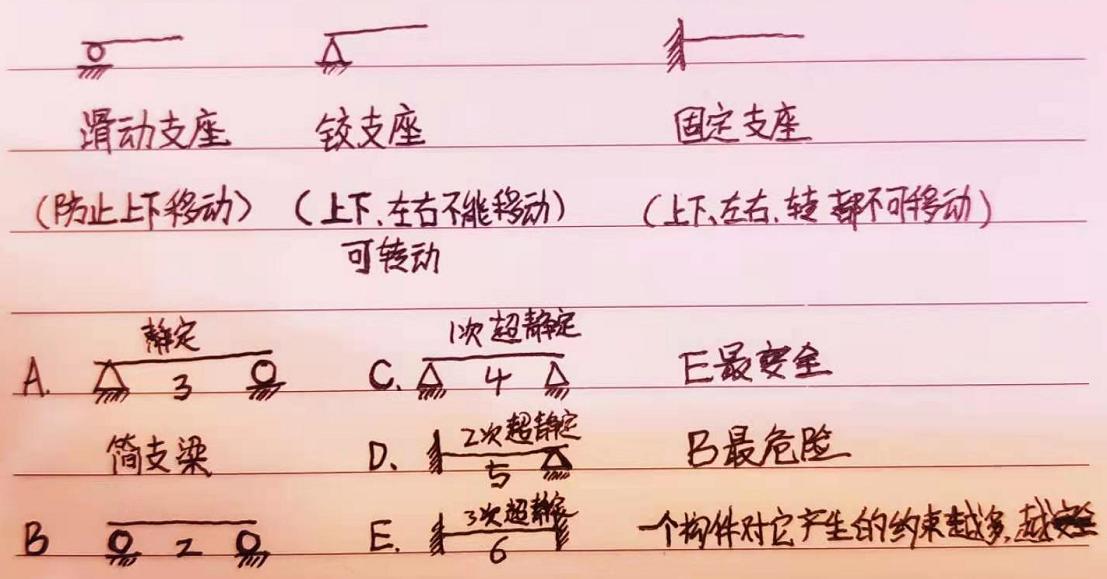 滑动支座 铰支座 固定支座
(防止上下移动) (上下、左右不能移动) (上下、左右、转都不可移动)
可转动
静定 1次超静定
A. 3 C. 4 E最安全
简支梁 D、 2次超静定 5 B最危险
B 2 E. 3次超静定 6 一个构件对它产生的约束越多,越安全